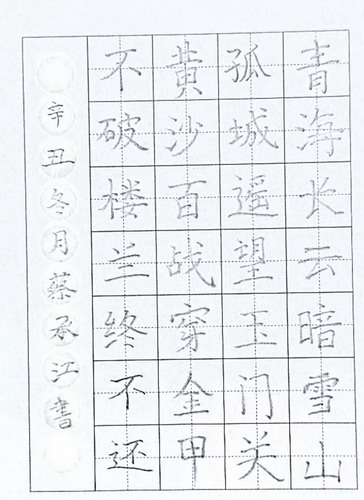 青海长云暗雪山
孤城遥望玉门关
黄沙百战穿金甲
不破楼兰终不还
辛丑冬月蔡承江書